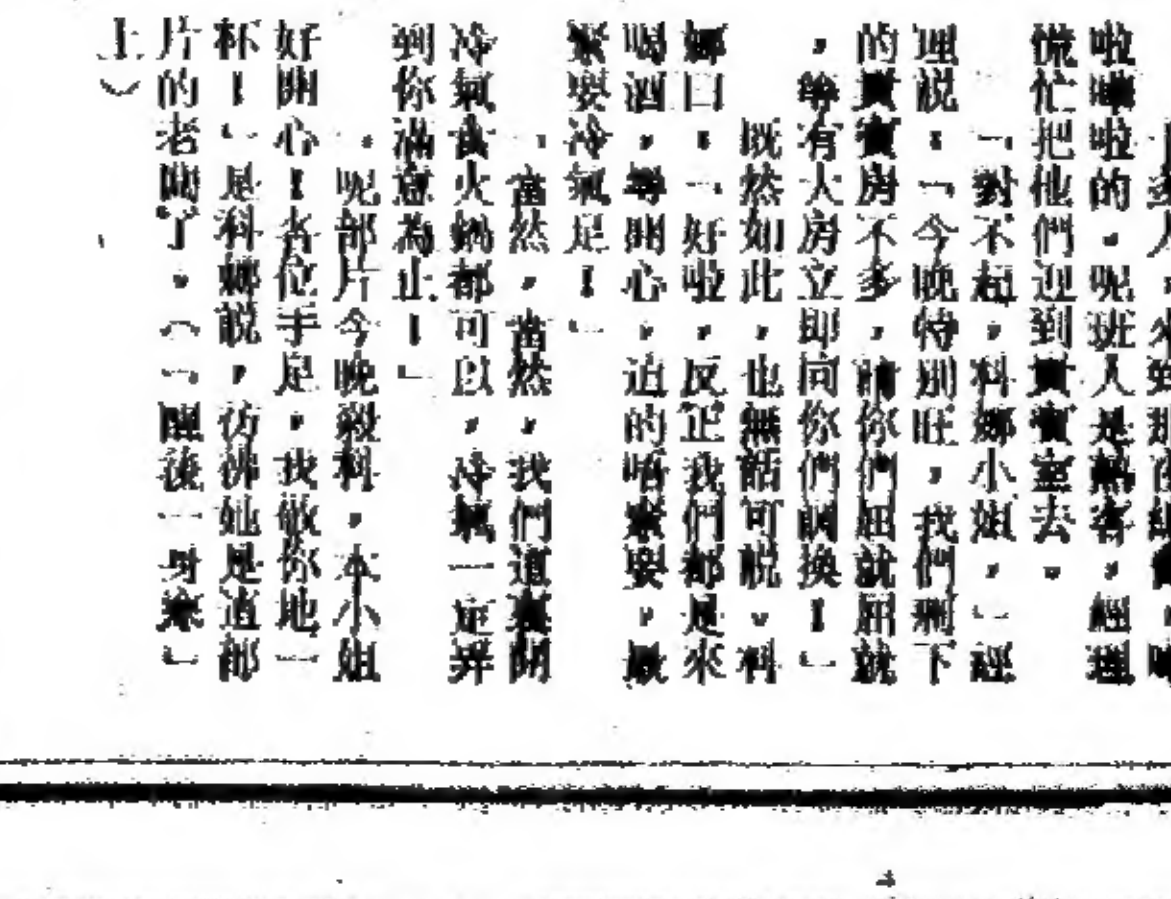 啦嘩啦的。呢班人是熟客，經理
慌忙把他們迎到貴賓室去。
「對不起，科娜小姐，」經
理說：「今晚特別旺，我們剩下
的貴賓房不多，請你們屈就屈就
，等有大房立即同你們調換！」
既然如此，也無話可說。科
娜口：「好啦，反正我們都是來
喝酒，尋開心，迫的唔緊要，最
緊要冷氣足！」
「當然，當然，我們這裏開
冷氣食火鍋都可以，冷氣一定弄
到你滿意為止！」
「呢部片今晚殺科，本小姐
好開心！各位手足，我敬你地一
杯！」是科娜說，彷彿她是這部
片的老闆了。（「醒後一身
上）